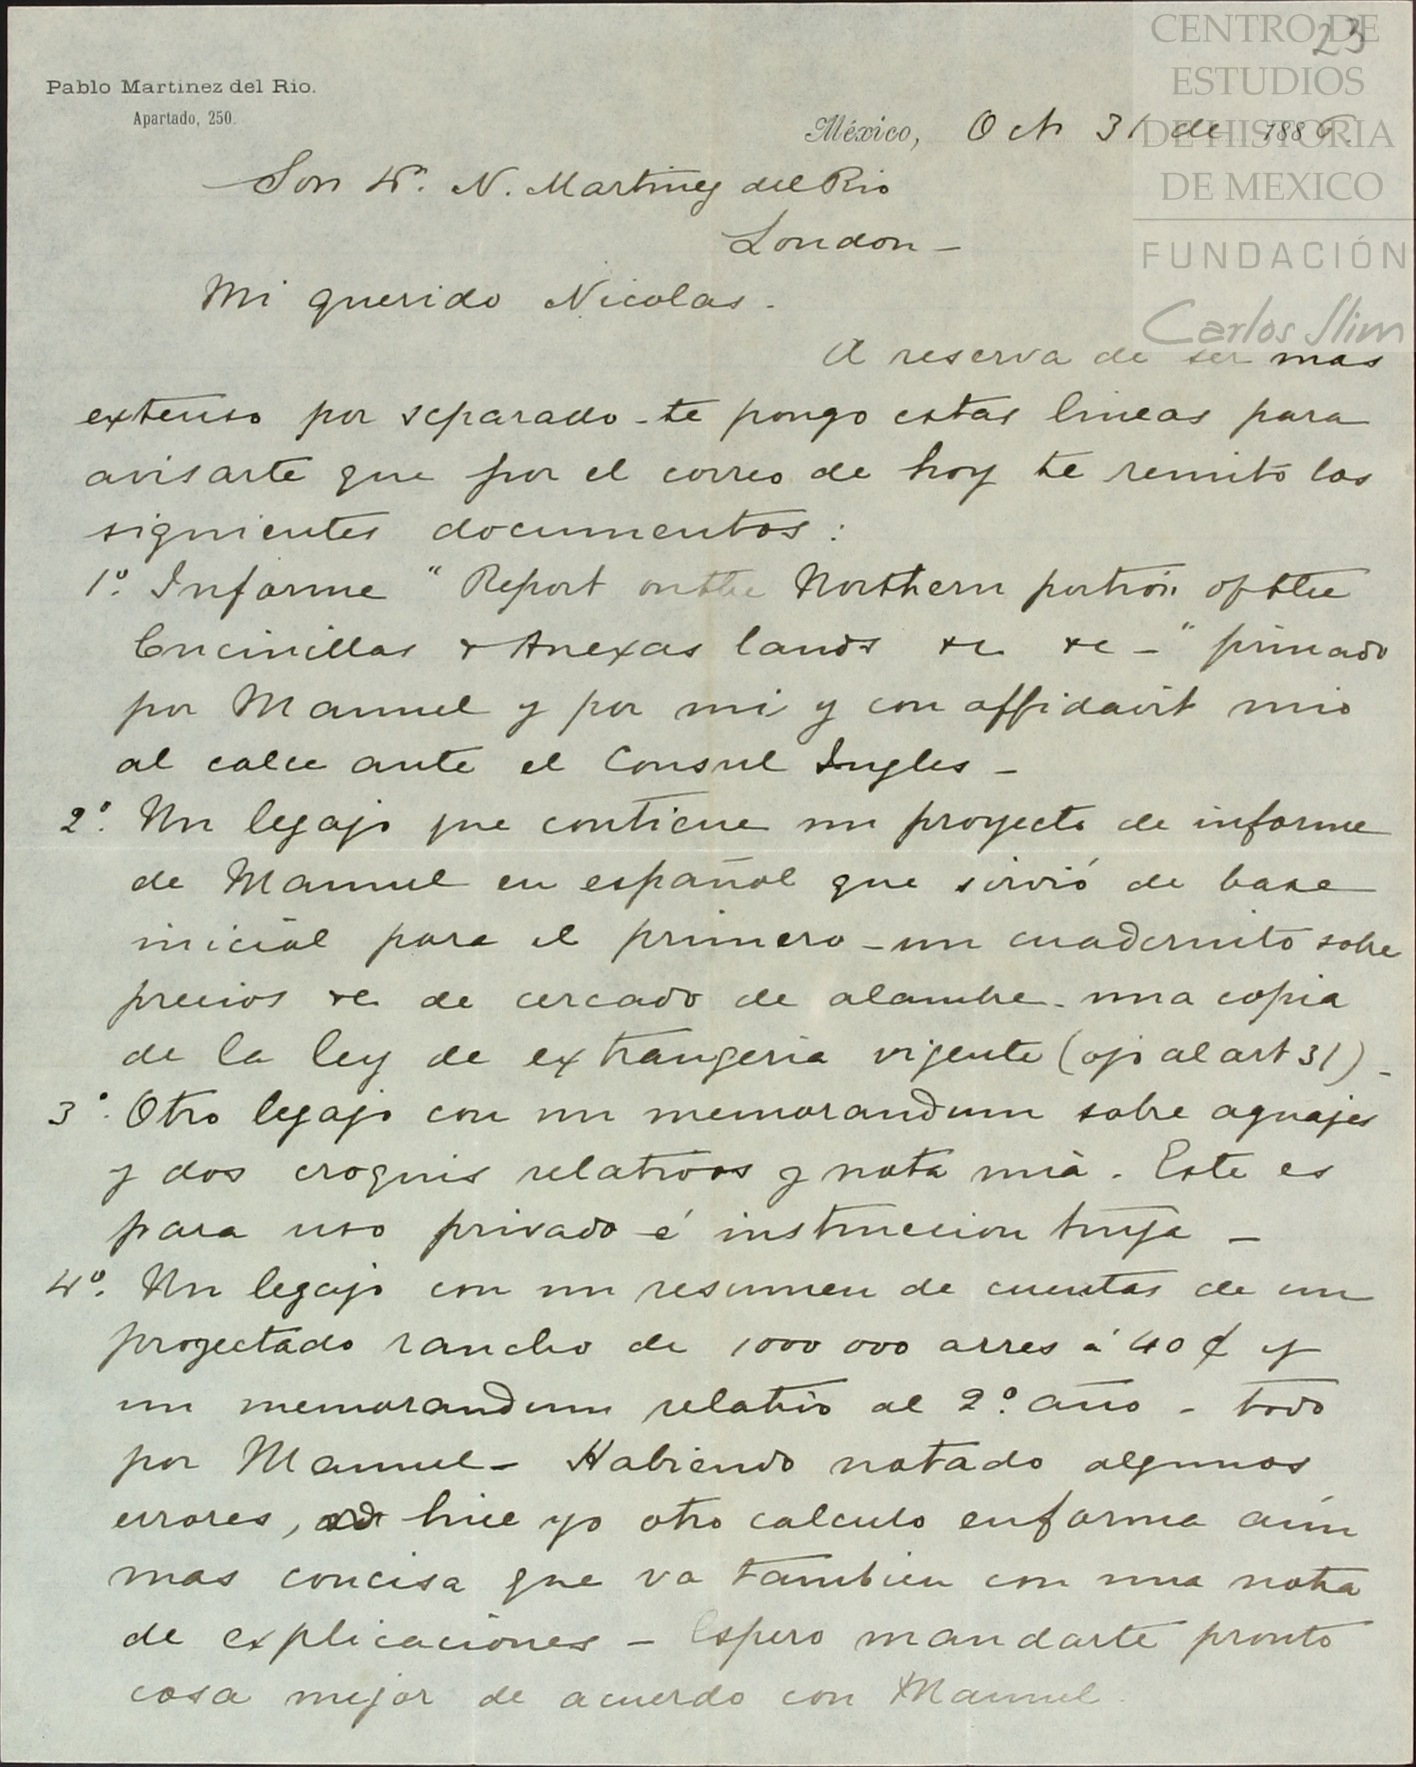 23
CENTRO DE
ESTUDIOS
DE HISTORIA
DE MEXICO
FUNDACIÓN
Carlos Slim
Pablo Martinez del Rio.
Apartado, 250.
México, Oct 31 de 1886.
Son Dn. N. Martinez del Rio
London -
Mi querido Nicolas.
A reserva de ser mas
extenso por separado - te pongo estas lineas para
avisarte que por el correo de hoy te remito los
siguientes documentos:
1º. Informe " Report on the Northern portion of the
Encinillas & Anexas lands &c &c - " firmado
por Manuel y por mi y con affidavit mio
al calce ante el Consul Ingles -
2º. Un legajo que contiene un proyecto de informe
de Manuel en español que sirvió de base
inicial para el primero - un cuadernito sobre
precios &c de cercado de alambre - una copia
de la ley de extrangeria vigente (ojo al art 31) -
3º. Otro legajo con un memorandum sobre aguajes
y dos croquis relativos y nota mia. Este es
para uso privado é instruccion tuya -
4º. Un legajo con un resumen de cuentas de un
proyectado rancho de 1000 000 acres á 40 ¢ y
un memorandum relativo al 2º. año - todo
por Manuel - Habiendo notado algunos
errores, hice yo otro calculo en forma aún
mas concisa que va tambien con una nota
de explicaciones - Espero mandarte pronto
cosa mejor de acuerdo con Manuel.